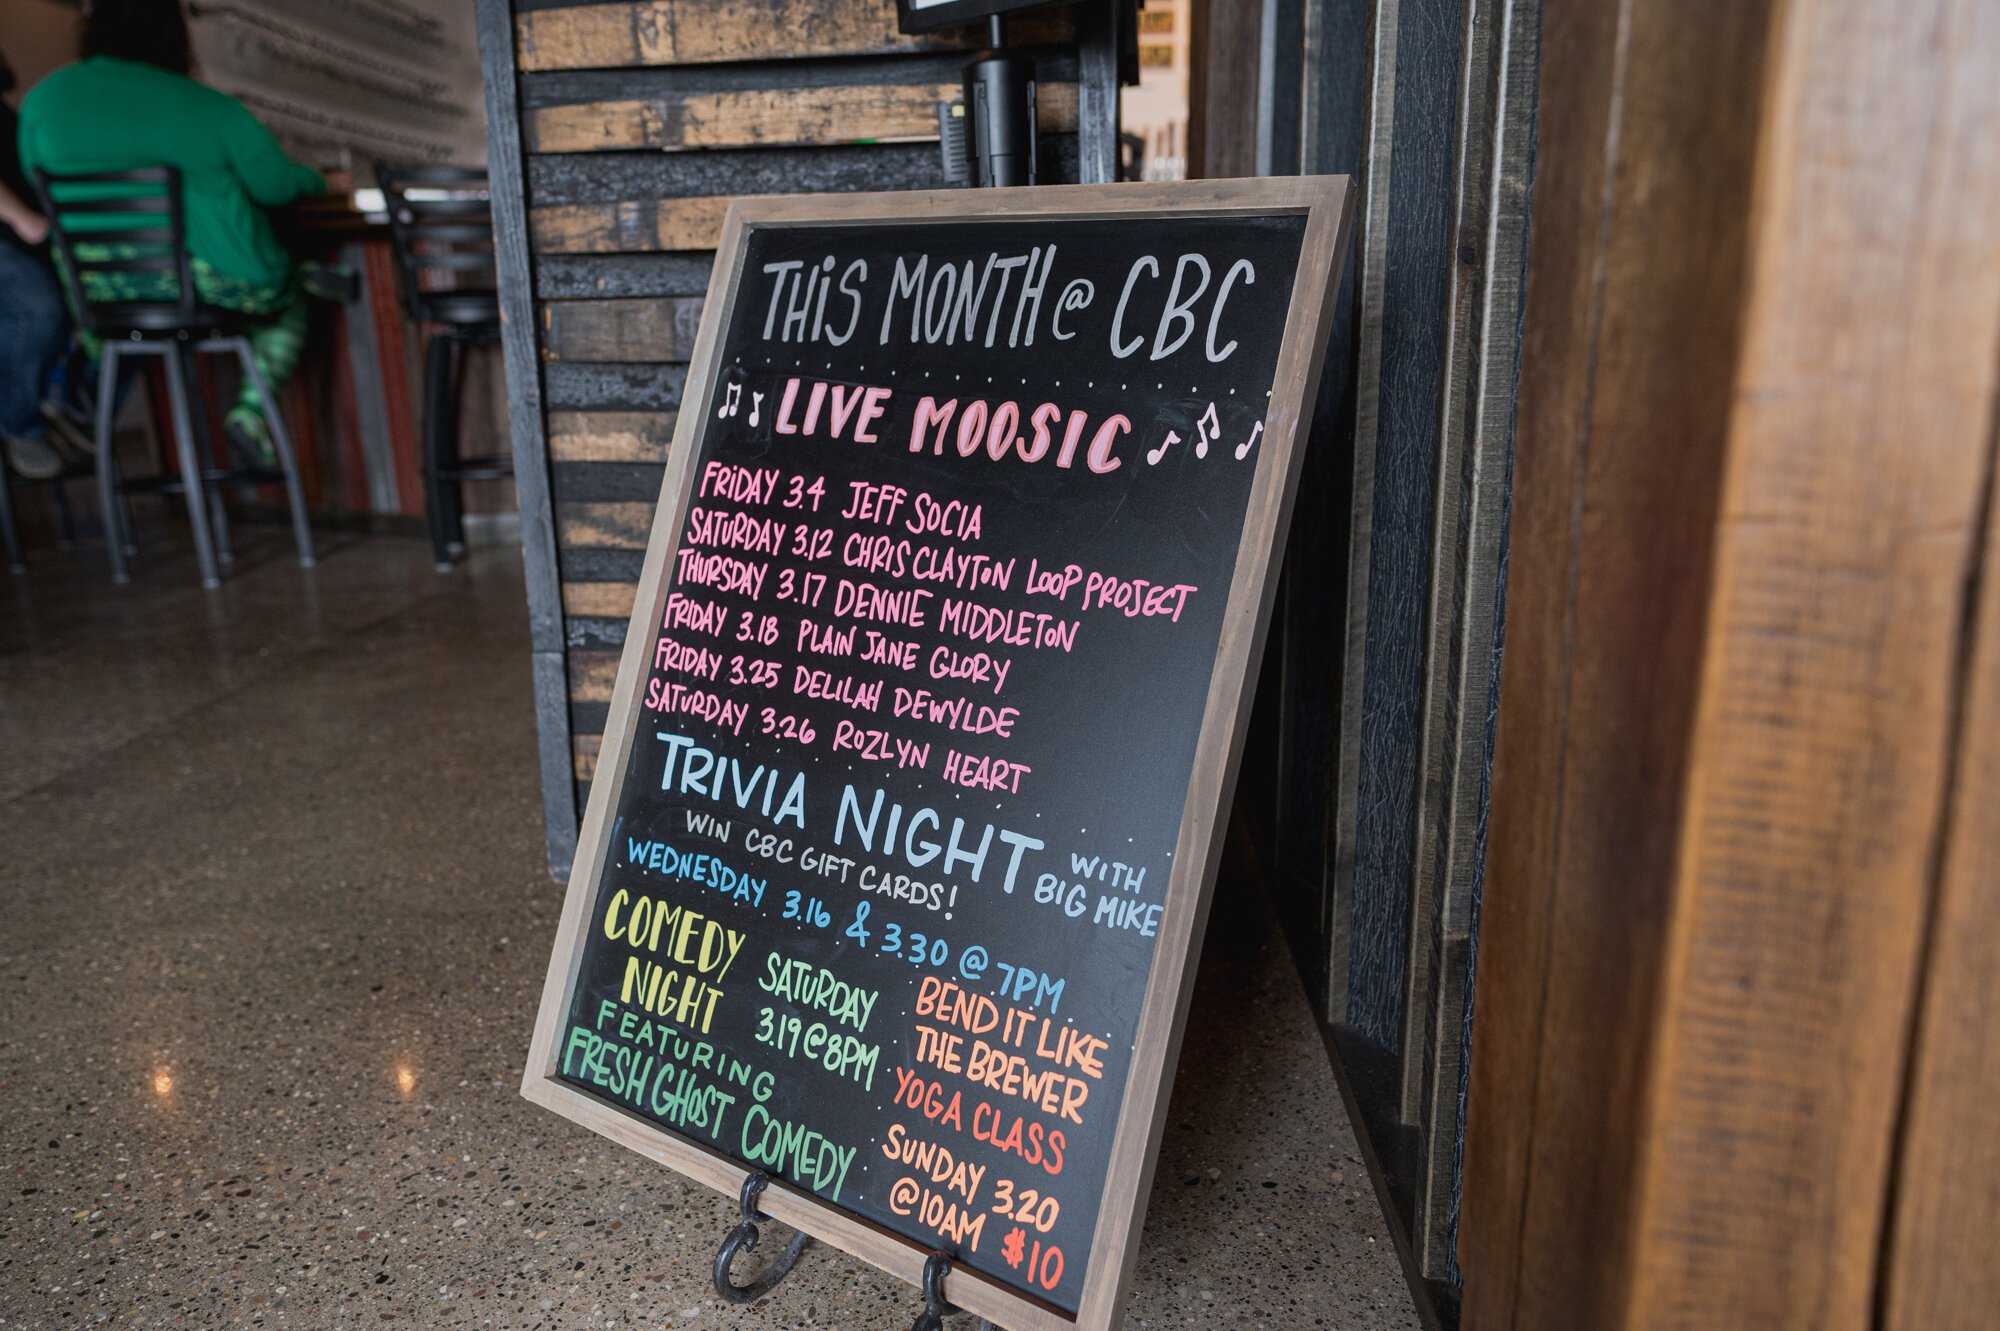 THiS MONTH @ CBC
LIVE MOOSIC
FRiDAY 3.4 JEFF SOCIA
SATURDAY 3.12 CHRIS CLAYTON LOOP PROJECT
THURSDAY 3.17 DENNIE MIDDLETON
FRIDAY 3.18 PLAIN JANE GLORY
FRIDAY 3.25 DELILAH DEWYLDE
SATURDAY 3.26 ROZLYN HEART
TRIVIA NIGHT WiTH BIG MIKE
WIN CBC GIFT CARDS!
WEDNESDAY 3.16 & 3.30 @ 7PM
COMEDY
NIGHT
FEATURING
FRESH GHOST COMEDY
SATURDAY
3.19 @ 8PM
BEND IT LIKE
THE BREWER
YOGA CLASS
SUNDAY 3.20
@ 10AM $10